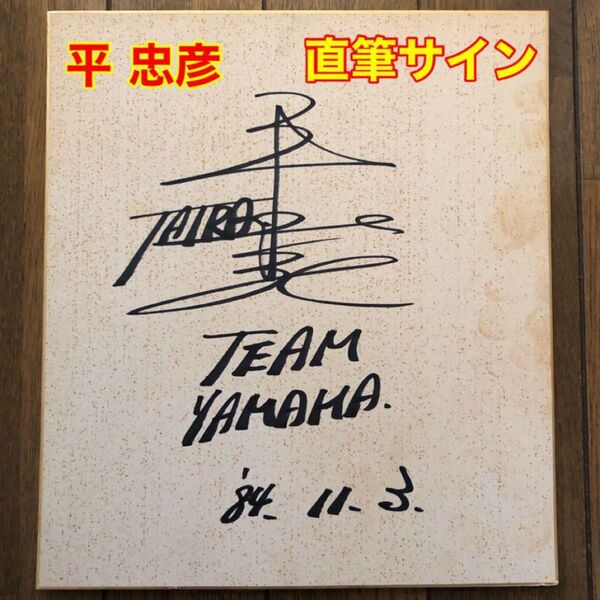 平 忠彦 直筆サイン
TAIRA
TEAM
YAMAHA.
'84. 11. 3.